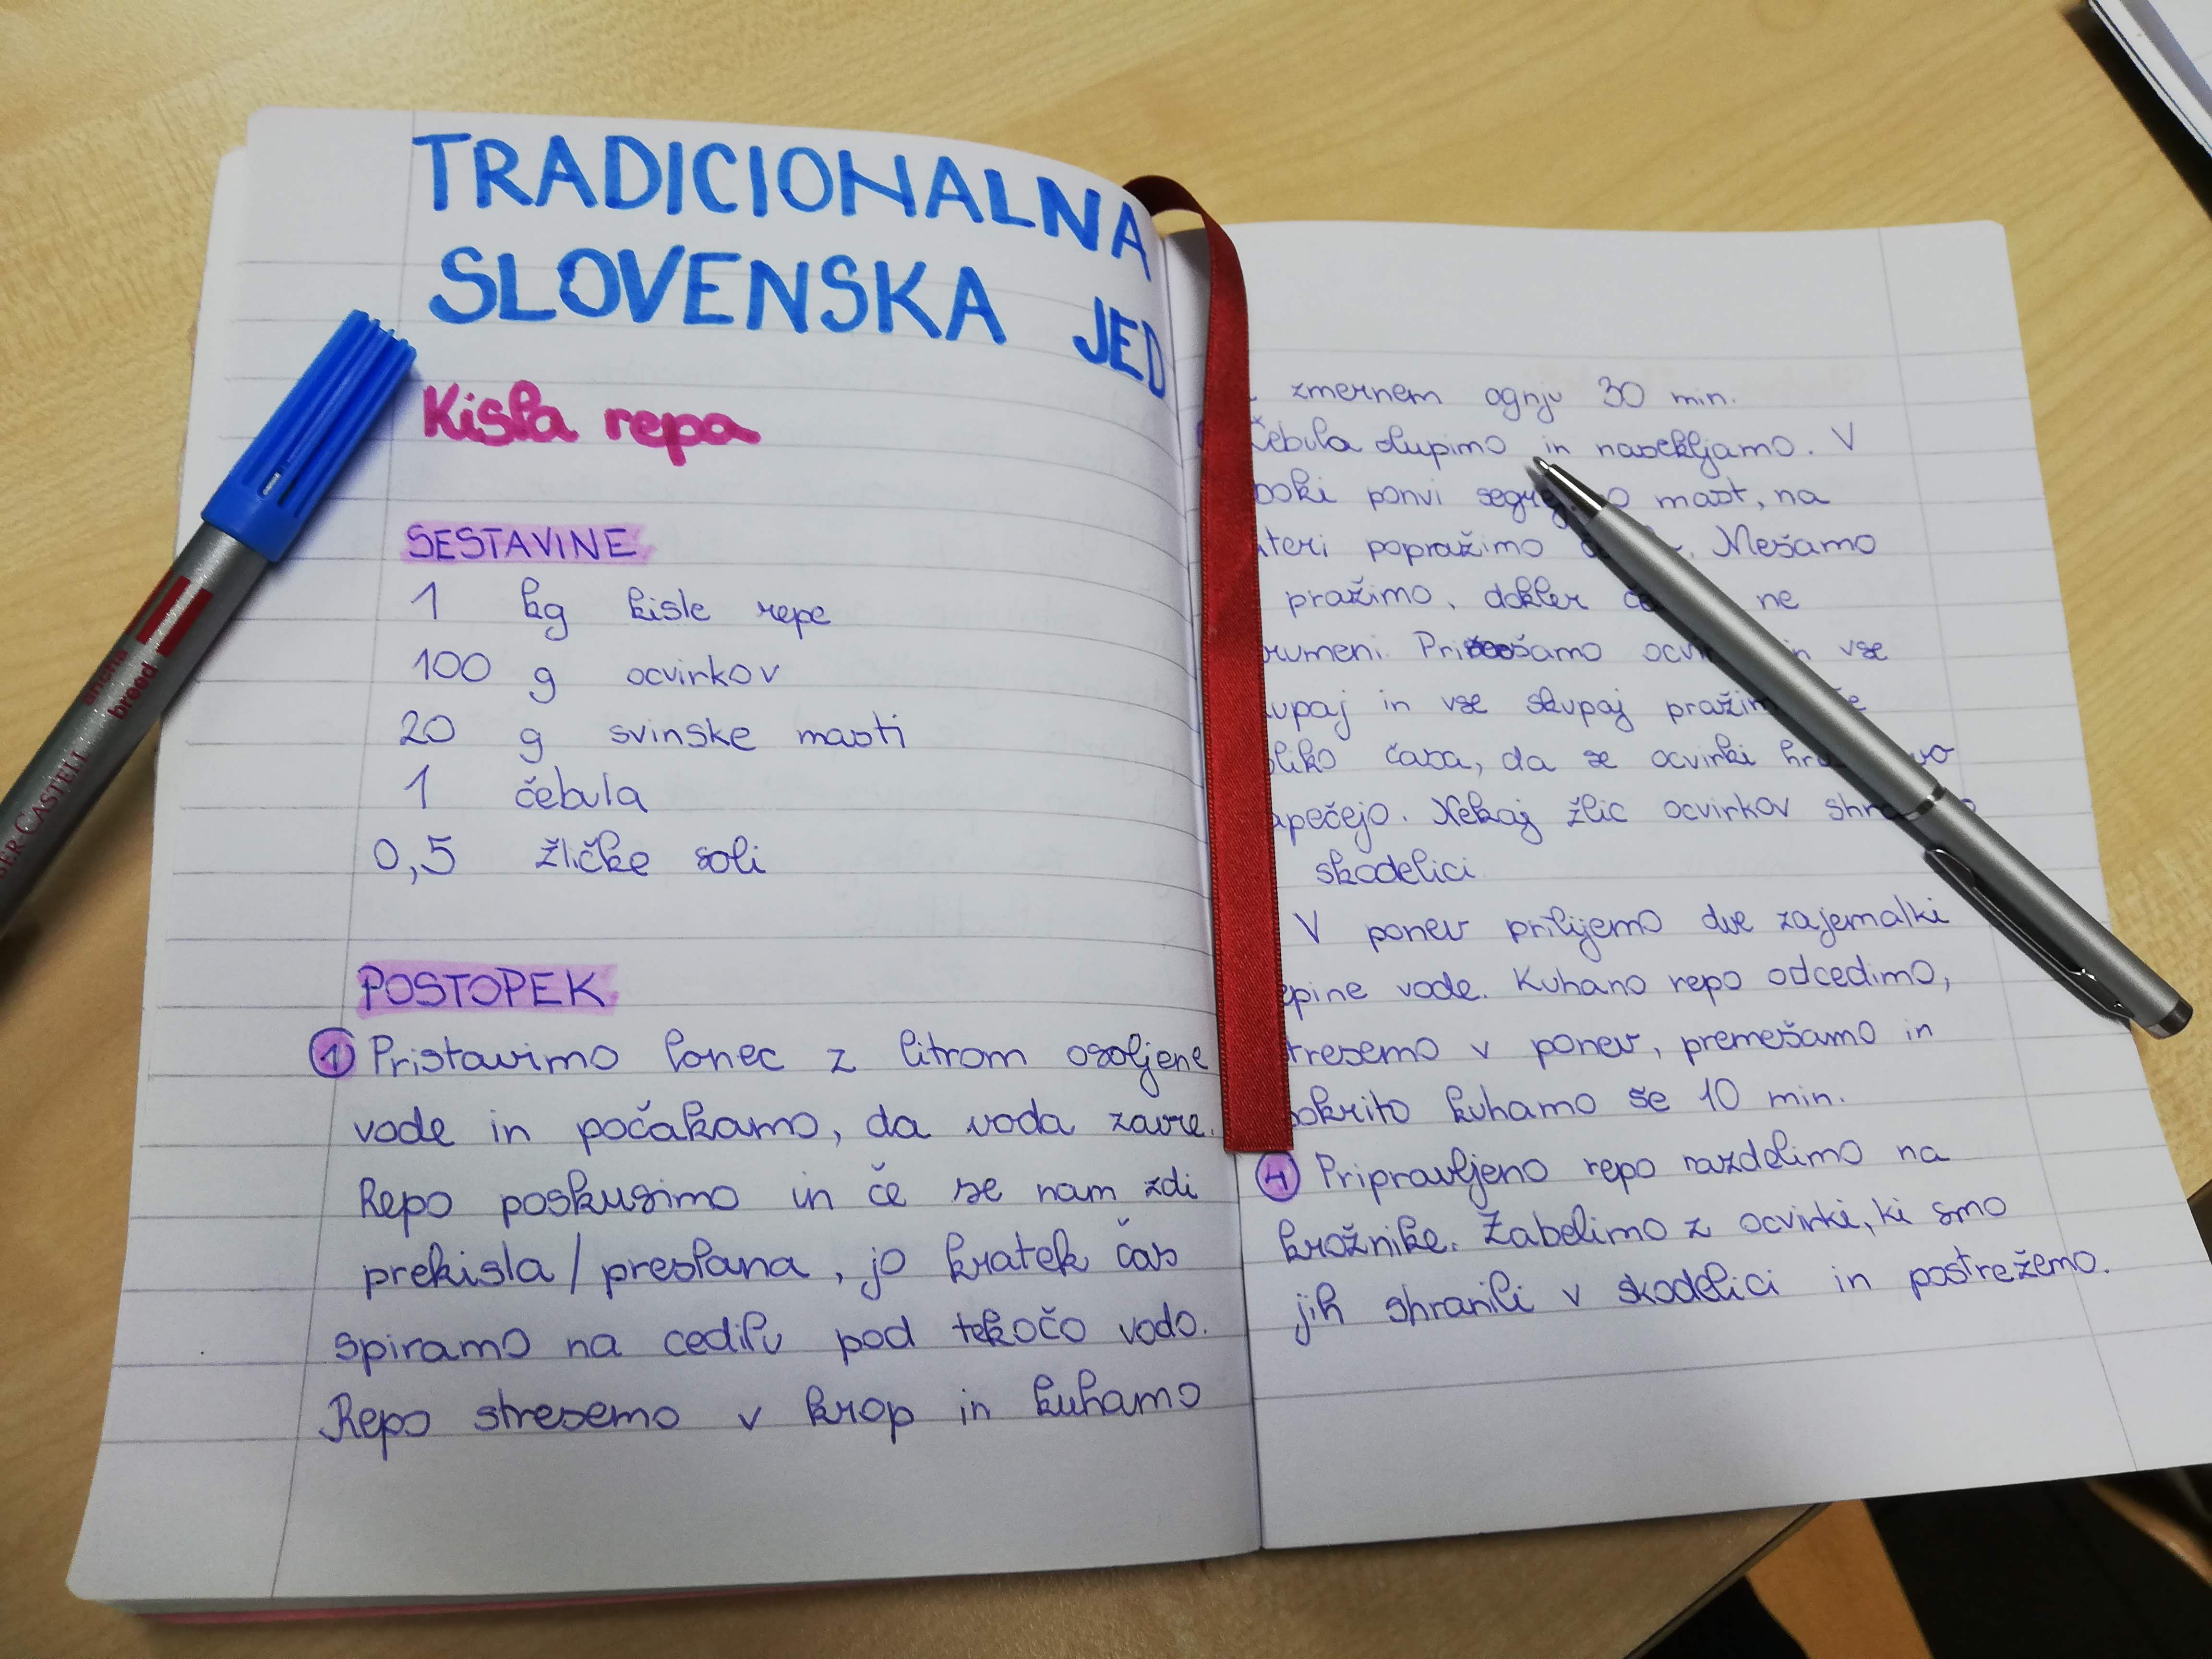 TRADICIONALNA
SLOVENSKA JED
Kisla repa
SESTAVINE
1 kg kisle repe
100 g ocvirkov
20 g svinske masti
1 čebula
0,5 žličke soli
POSTOPEK
1 Pristavimo lonec z litrom osoljene
vode in počakamo, da voda zavre.
Repo poskusimo in če se nam zdi
prekisla / preslana, jo kratek čas
spiramo na cedilu pod tekočo vodo.
Repo stresemo v krop in kuhamo
zmernem ognju 30 min.
Čebula olupimo in nasekljamo. V
ponvi mast, na
popražimo Mešamo
pražimo, dokler ne
Prišamo vse
in vse skupaj
časa, da se ocvirki
Nekaj žlic ocvirkov
skodelici
V ponev prilijemo dve zajemalki
vode. Kuhano repo odcedimo,
v ponev, premešamo in
kuhamo še 10 min.
4 Pripravljeno repo razdelimo na
krožnike. Zabelimo z ocvirki, ki smo
jih shranili v skodelici in postrežemo.
breed